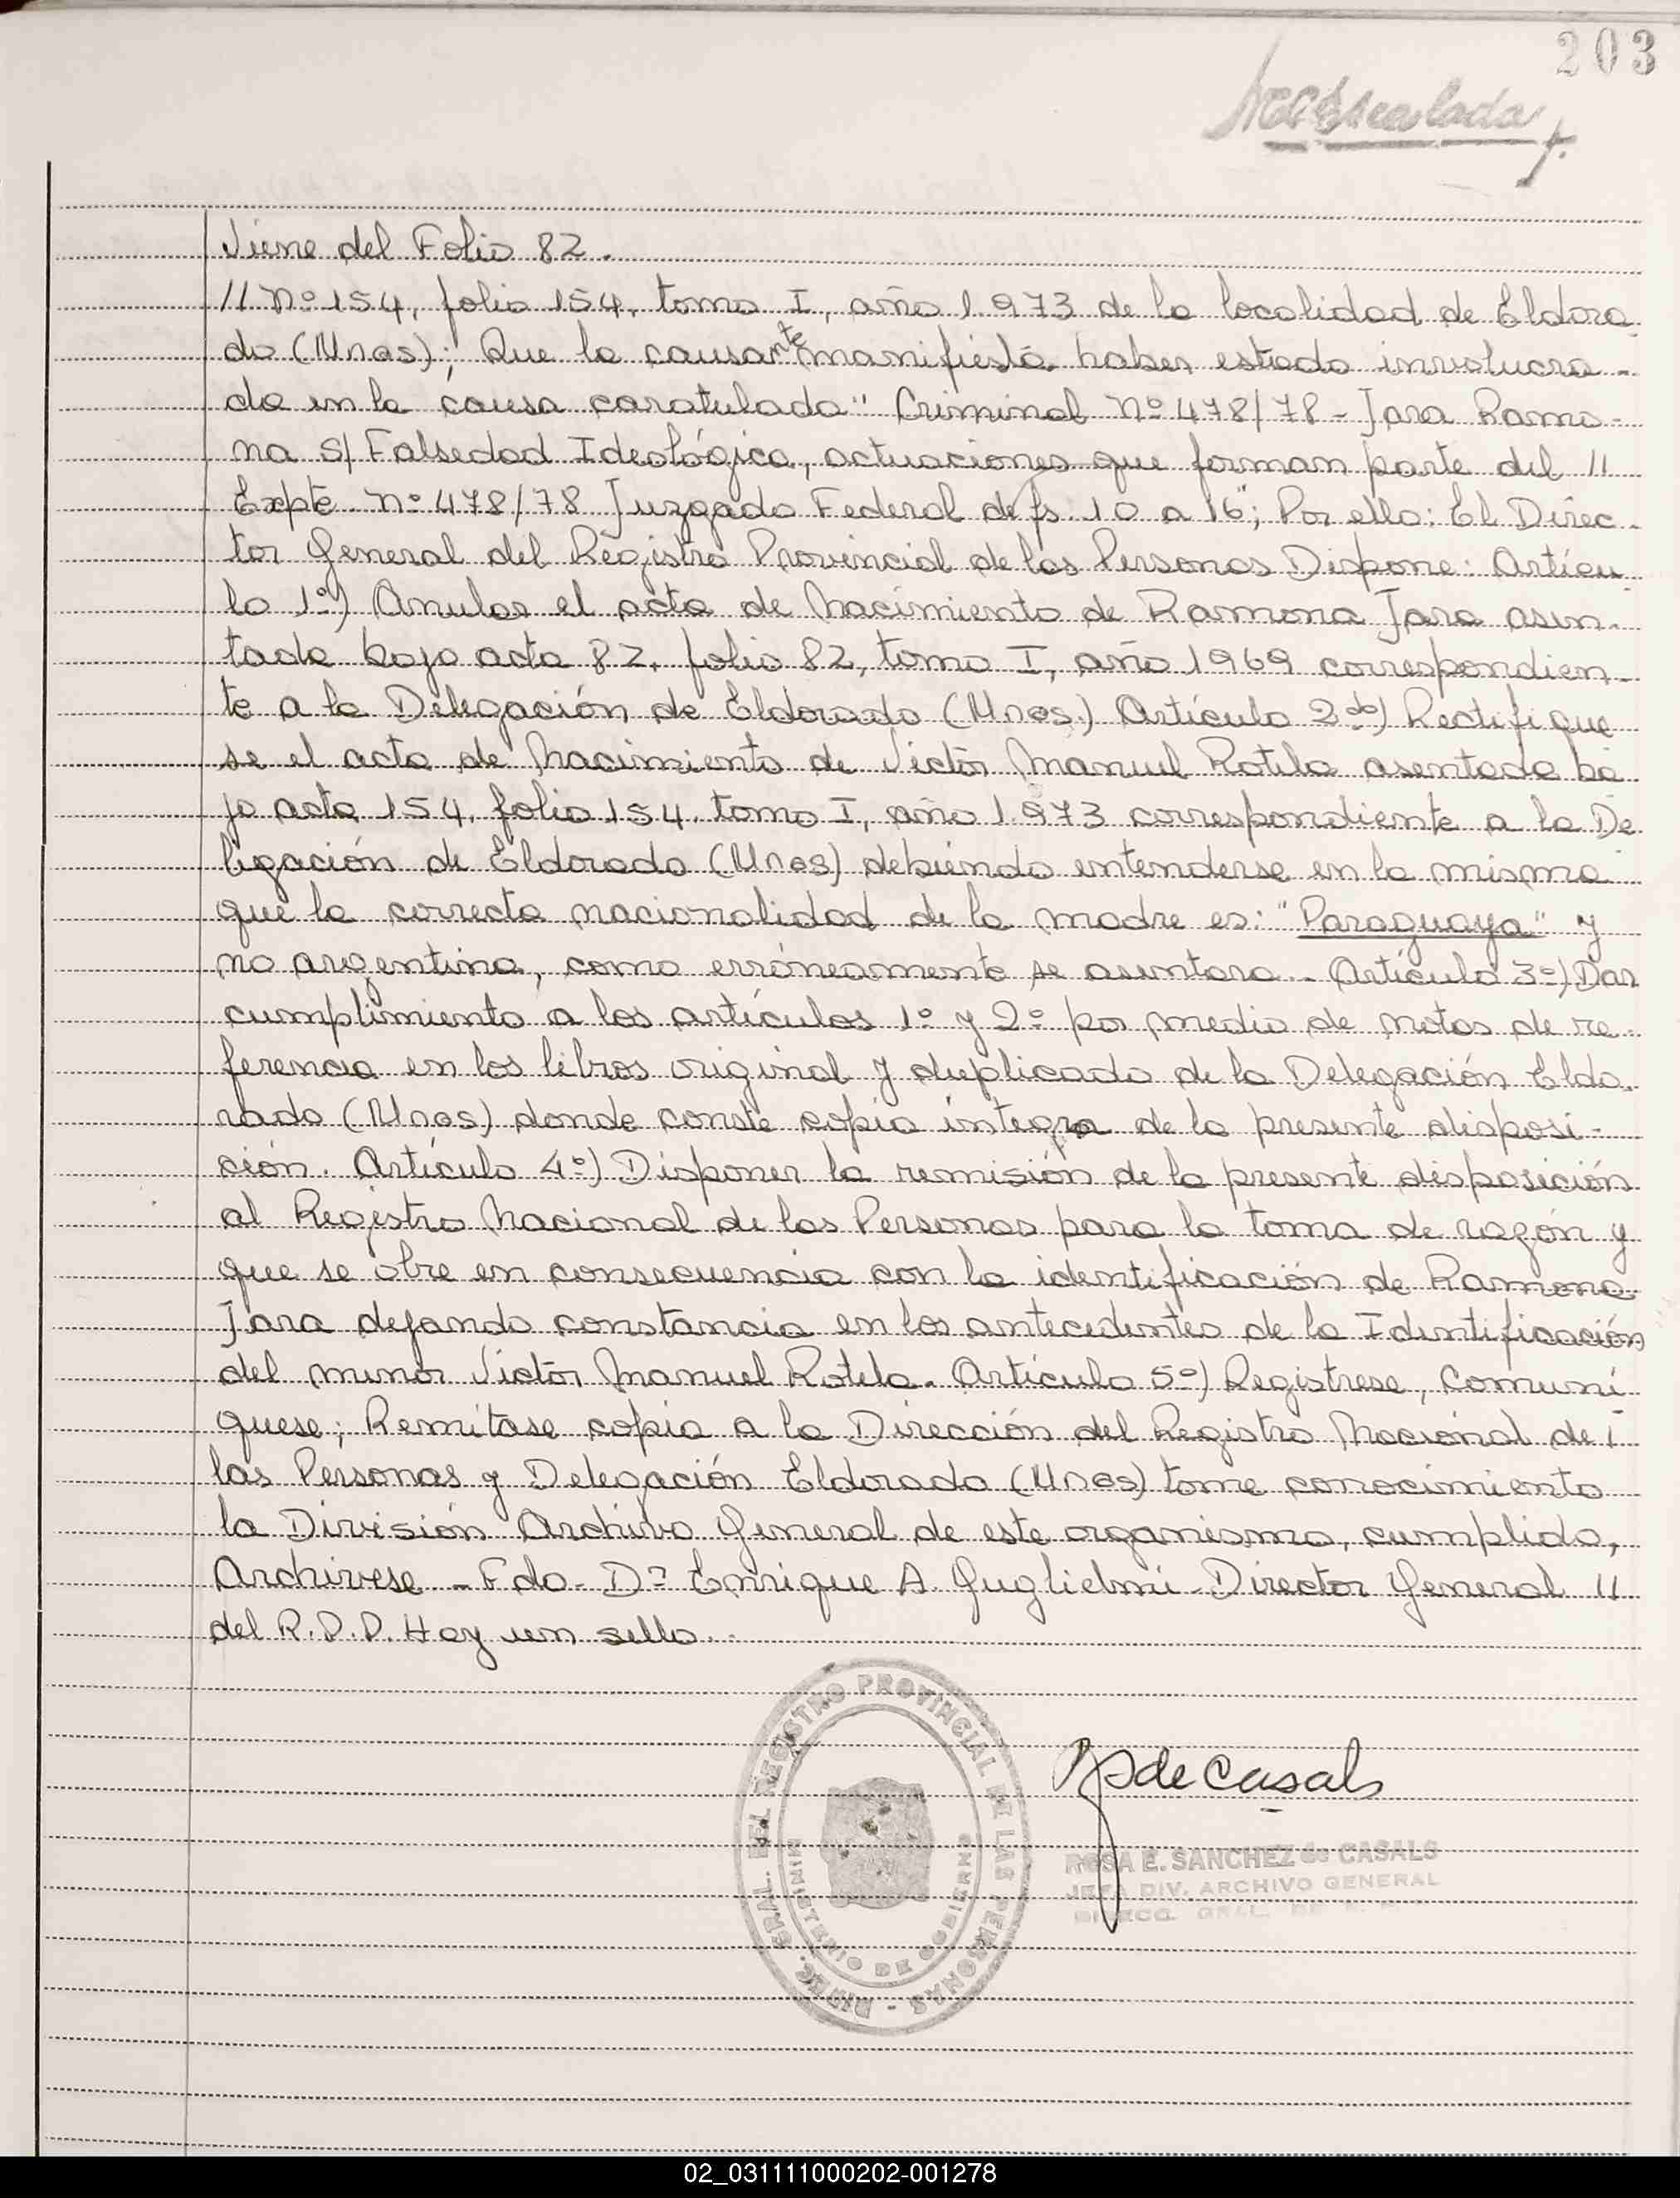 203
Viene del Folio 82.
// Nº 154, folio 154, tomo I, año 1.973 de la localidad de Eldora
do (Mnes); Que la causante manifiesta haber estado involucra-
da en la causa caratulada "Criminal Nº 478/78 - Jara Ramo-
na S/ Falsedad Ideológica, actuaciones que forman parte del //
Expte. Nº 478/78 Juzgado Federal de fs. 10 a 16"; Por ello: El Direc-
tor General del Registro Provincial de las Personas Dispone: Artícu
lo 1º) Anular el acta de Nacimiento de Ramona Jara asen-
tada bajo acta 82, folio 82, tomo I, año 1969 correspondien-
te a la Delegación de Eldorado (Mnes.) Artículo 2do) Rectifique
se el acta de Nacimiento de Victor Manuel Rotela asentada ba
jo acta 154, folio 154, tomo I, año 1.973 correspondiente a la De
legación de Eldorado (Mnes) debiendo entenderse en la misma
que la correcta nacionalidad de la madre es: "Paraguaya" y
no argentina, como erróneamente se asentara - Artículo 3º) Dar
cumplimiento a los artículos 1º y 2º por medio de notas de re-
ferencia en los libros original y duplicado de la Delegación Eldo-
rado (Mnes) donde conste copia íntegra de la presente disposi-
ción. Artículo 4º) Disponer la remisión de la presente disposición
al Registro Nacional de las Personas para la toma de razón y
que se obre en consecuencia con la identificación de Ramona
Jara dejando constancia en los antecedentes de la Identificación
del menor Victor Manuel Rotela. Artículo 5º) Registrese, Comuní
quese; Remítase copia a la Dirección del Registro Nacional de /
las Personas y Delegación Eldorado (Mnes) tome conocimiento
la División Archivo General de este organismo, cumplido,
Archivese - Fdo - Dn Enrique A. Guglielmi - Director General //
del R.P.P. Hay un sello.
DIREC. GRAL. DEL REGISTRO PROVINCIAL DE LAS PERSONAS -
MINISTERIO DE GOBIERNO
de Casals
ROSA E. SANCHEZ de CASALS
JEFA DIV. ARCHIVO GENERAL
DIRECC. GRAL.
02_031111000202-001278